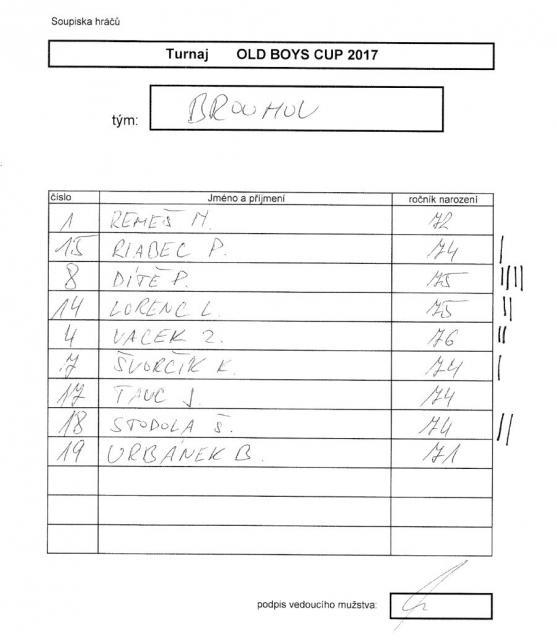 Soupiska hráčů
Turnaj OLD BOYS CUP 2017
tým: BROUMOV
číslo Jméno a příjmení ročník narození
1 REMEŠ M. 72
15 RIABEC P. 74
8 DÍTĚ P. 75
14 LORENC L. 75
4 VACEK Z. 76
7 ŠVORČÍK K. 74
17 TAUC J. 74
18 STODOLA Š. 74
19 URBÁNEK B. 71
podpis vedoucího mužstva: